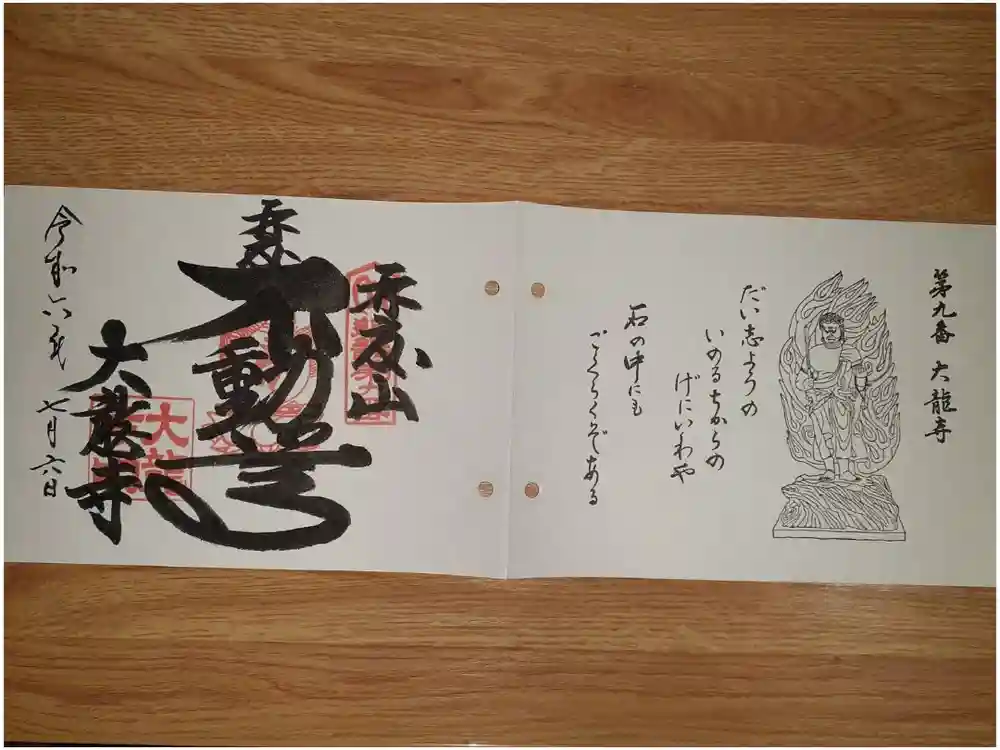 第九番 大龍寺
だい志よりの
いのるちからの
げにいわや
石の中にも
ごくらくぞある
再度山
不動尊
大龍寺
令和六年 七月六日